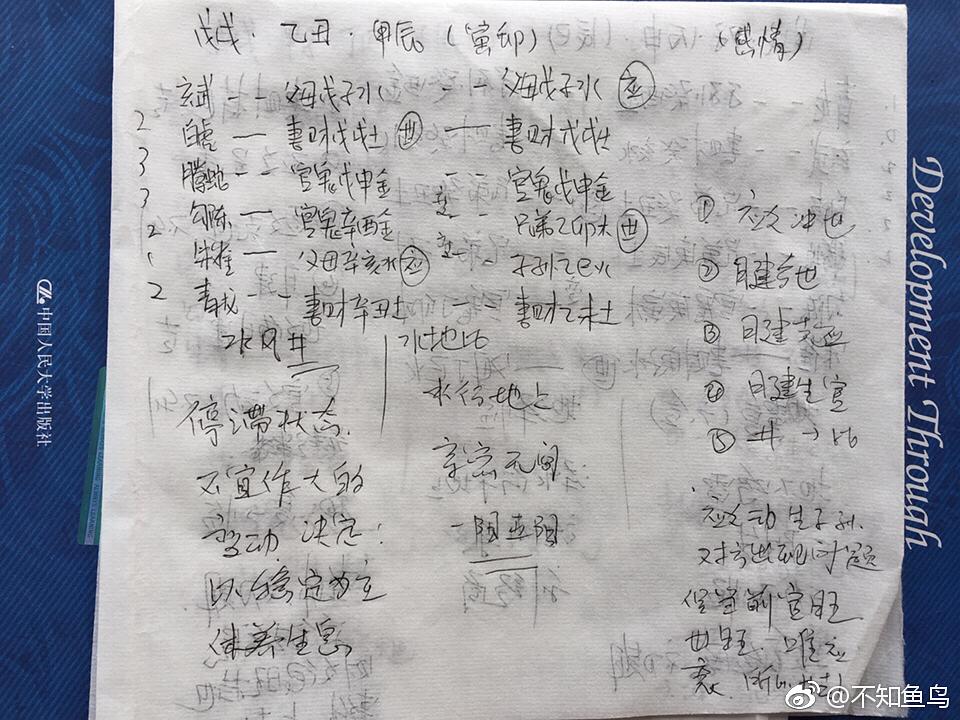 戊戌·乙丑·甲辰（寅卯）（感情）
玄武 -- 父母戊子水 -- 父母戊子水 应
2 白虎 — 妻财戊戌土 世 — 妻财戊戌土
3 腾蛇 -- 官鬼戊申金 -- 官鬼戊申金
3 勾陈 — 官鬼辛酉金 -- 兄弟乙卯木 世
2 朱雀 — 父母辛亥水 应 -- 子孙乙巳火
2 青龙 -- 妻财辛丑土 妻财乙未土
水风井
水地比
停滞状态.
不宜作大的
变动 决定:
以稳定为主
休养生息
水行地上
亲密无间
① 应爻冲世
② 日建合世
③ 日建克应
④ 日建生官
⑤ 井→比
应爻动生子孙.
对方出现问题
官旺
世旺. 唯应
衰.
中国人民大学出版社
Development Through
@不知鱼鸟